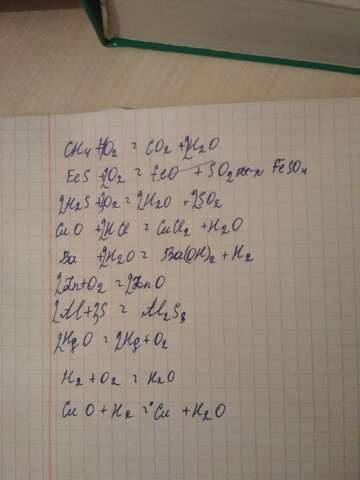 CH4 + 2O2 = CO2 + 2H2O
FeS + 2O2 = FeO + SO2 FeSO4
2H2S + 3O2 = 2H2O + 2SO2
CuO + 2HCl = CuCl2 + H2O
Ba + 2H2O = Ba(OH)2 + H2
2Zn + O2 = 2ZnO
2Al + 3S = Al2S3
2HgO = 2Hg + O2
H2 + O2 = H2O
CuO + H2 = Cu + H2O